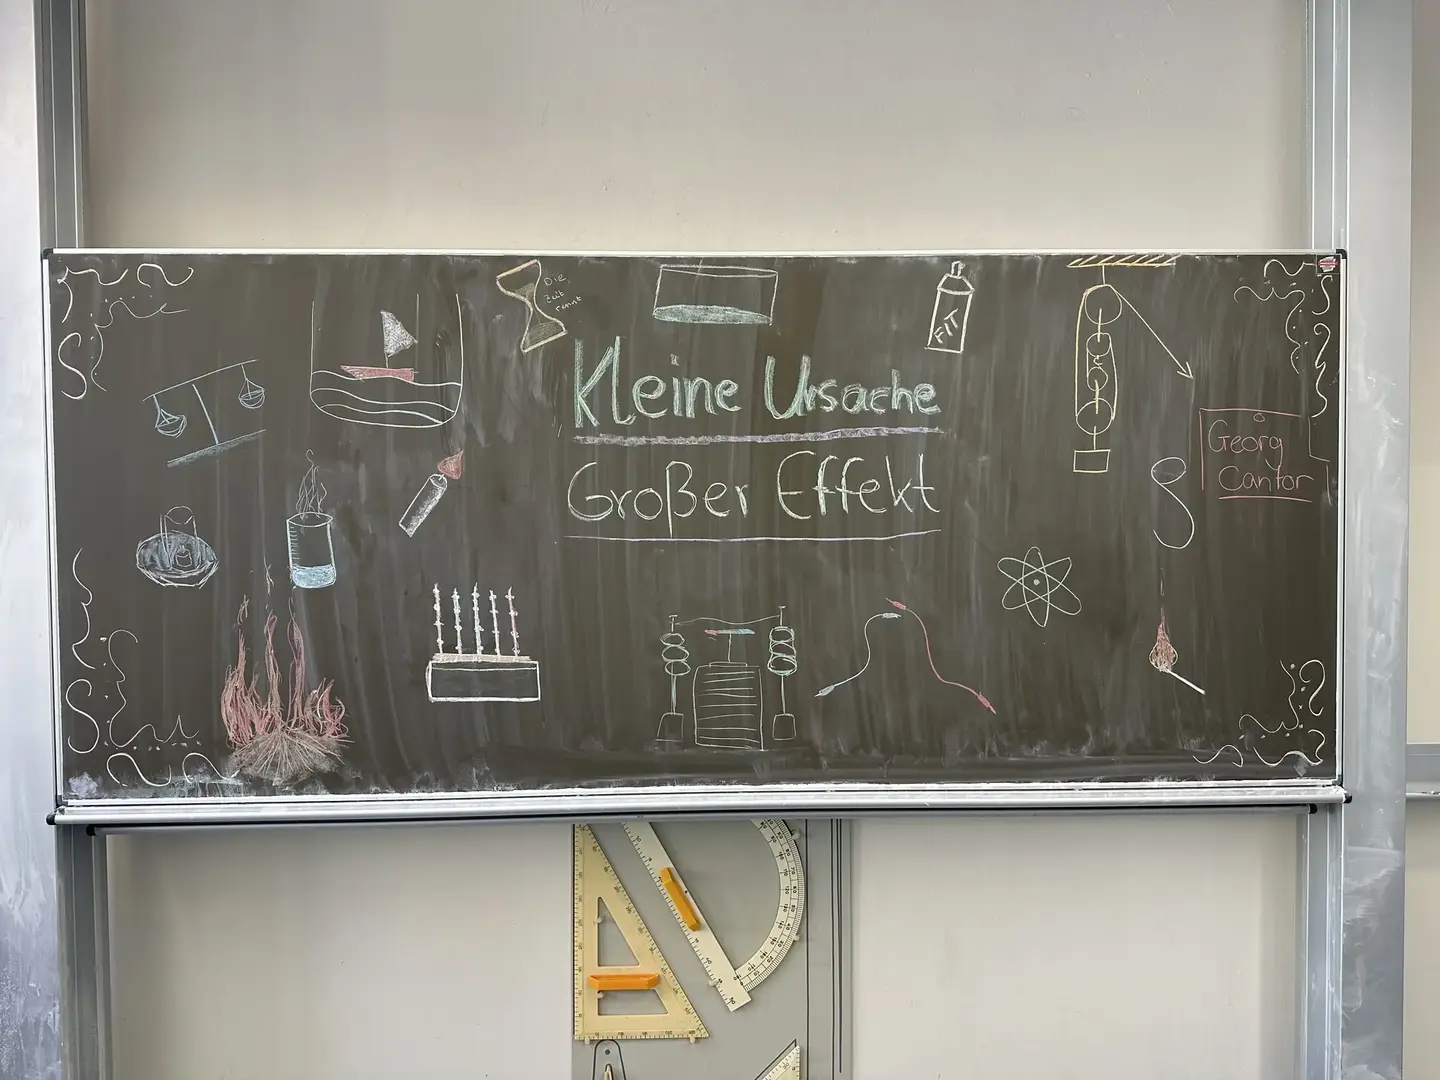 Die
Zeit
rennt
FIT
Kleine Ursache
Großer Effekt
Georg
Cantor